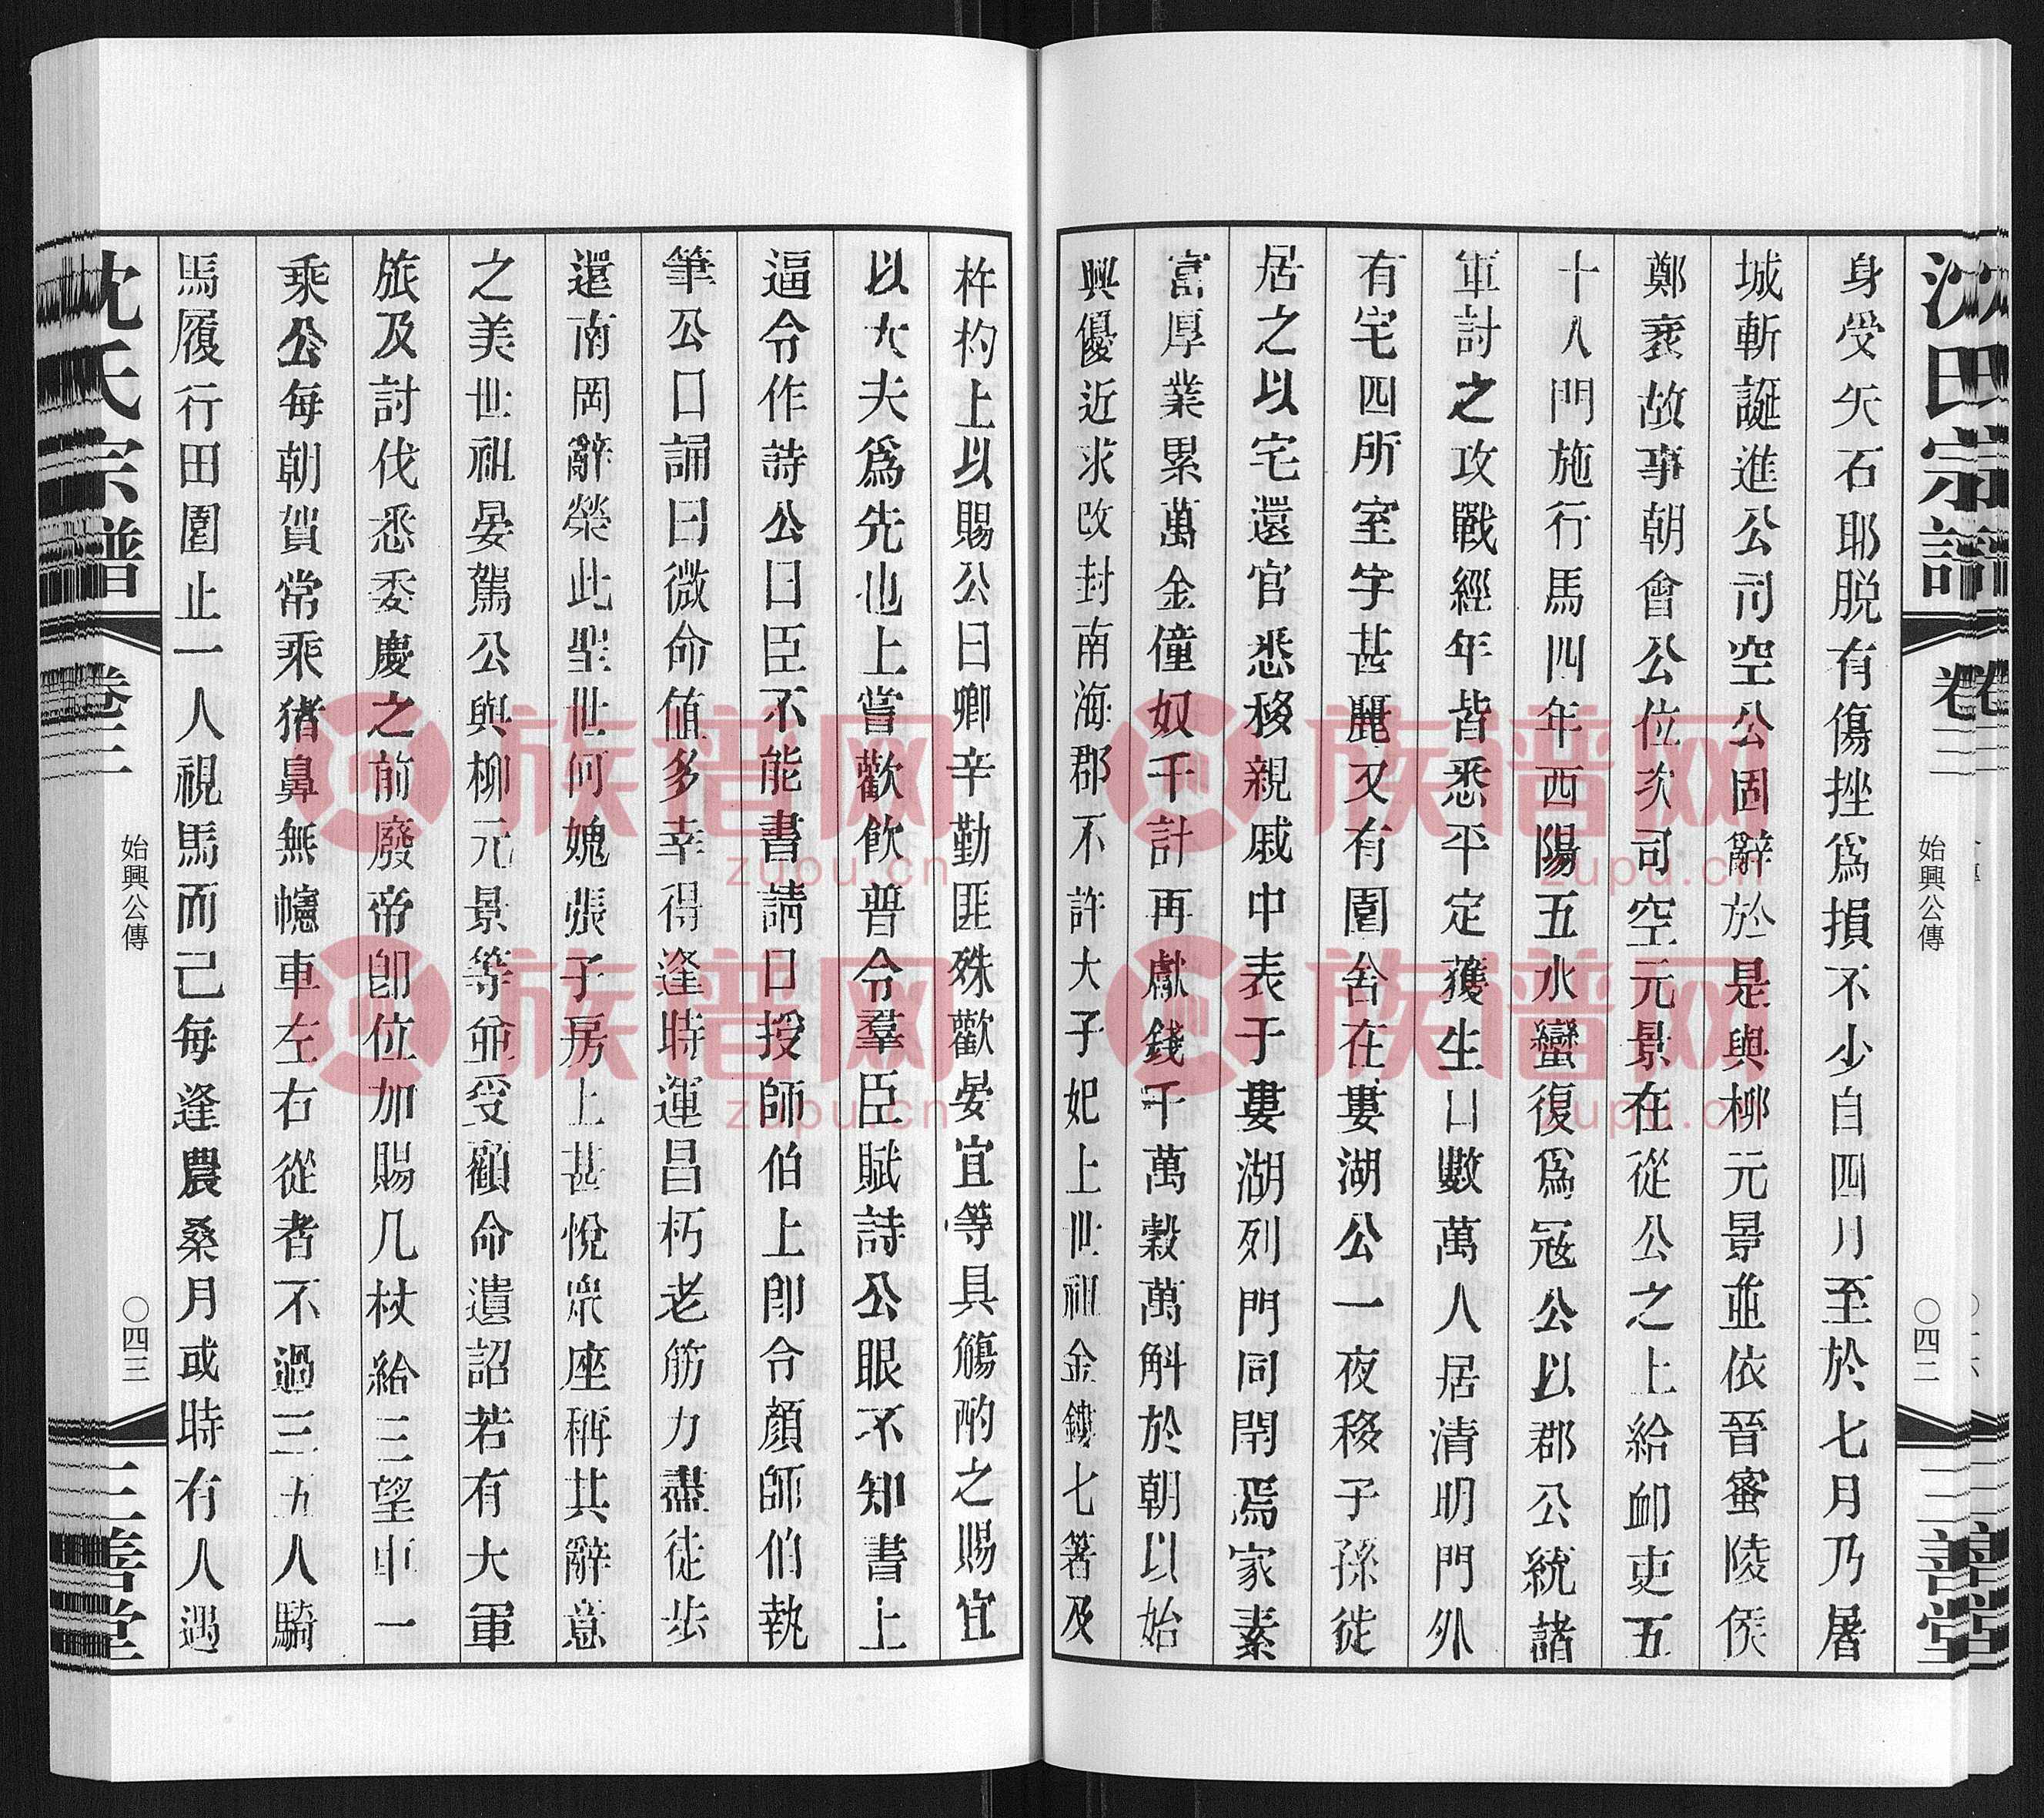 沈氏宗譜
卷三
始興公傳
〇四二
三善堂
身受矢石耶脱有傷挫爲損不少自四月至於七月乃屠
城斬誕進公司空公固辭於是與柳元景並依晉蜜陵侯
鄭袤故事朝會公位次司空元景在從公之上給卹吏五
十人門施行馬四年西陽五水蠻復爲冦公以郡公統諸
軍討之攻戰經年皆悉平定獲生口數萬人居清明門外
有宅四所室宇甚麗又有園舍在婁湖公一夜移子孫徙
居之以宅還官悉移親戚中表于婁湖列門同閈焉家素
富厚業累萬金僮奴千計再獻錢千萬穀萬斛於朝以始
興優近求改封南海郡不許大子妃上世祖金鏤七箸及
杵杓上以賜公曰卿辛勤匪殊歡晏宜等具觴酌之賜宜
以大夫爲先也上嘗歡飲普令羣臣賦詩公眼不知書上
逼令作詩公曰臣不能書請口授師伯上卽令顏師伯執
筆公口誦曰微命值多幸得逢時運昌朽老筋力盡徒步
還南岡辭榮此聖世何媿張子房上甚悅衆座稱其辭意
之美世祖晏駕公與柳元景等並受顧命遺詔若有大軍
旅及討伐悉委慶之前廢帝卽位加賜几杖給三望車一
乘公每朝賀常乘猪鼻無幰車左右從者不過三五人騎
馬履行田園止一人視馬而己每逢農桑月或時有人遇
沈氏宗譜
卷三
始興公傳
〇四三
三善堂
zupu.cn
族譜网
族譜网
zupu.cn
族譜网
族譜网
zupu.cn
zupu.cn